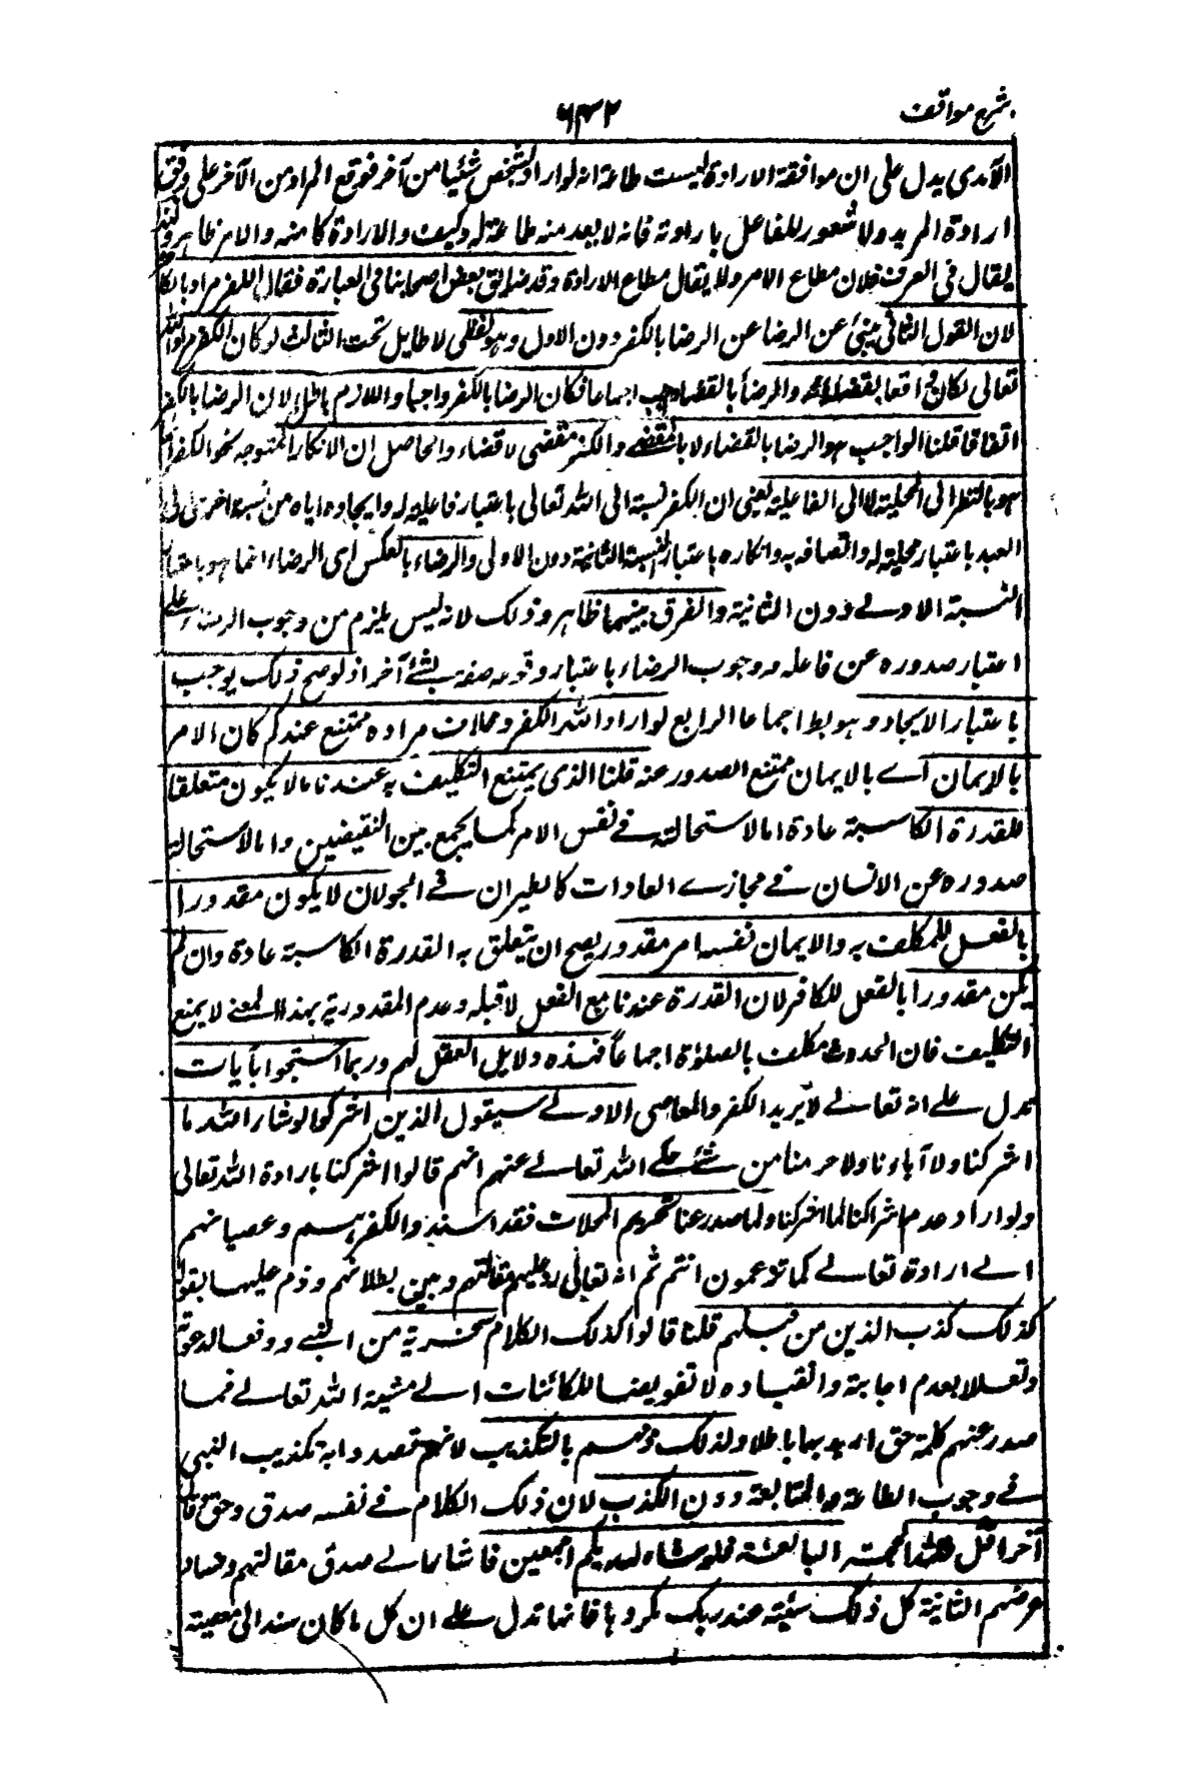 شرح مواقف
٦٣٢
الآمدی یدل علی ان موافقة الارادة لیست طاعة انه لو اراد شخص شیئا من آخر فوقع المراد من الآخر علی وفق
ارادة المرید ولا شعور للفاعل بارادته فانه لا یعد منه طاعة له وکیف والارادة کامنة والامر ظاهر ولهذ
یقال فی العرف فلان مطاع الامر ولا یقال مطاع الارادة وقد ضایق بعض اصحابنا فی العبارة فقال الکفر مراد بالکا
لان القول الثانی ینبئ عن الرضا عن الرضا بالکفر دون الاول وهو لفظی لا طایل تحته الثالث لو کان الکفر مراد الله
تعالی لکان واقعا بقضائه والرضا بالقضاء واجب اجماعا فکان الرضا بالکفر واجبا واللازم باطل لان الرضا بالکفر
اتفاقا قلنا الواجب هو الرضا بالقضاء لا بالمقضی والکفر مقضی لا قضاء والحاصل ان الانکار المتوجه نحو الکفر
هو بالنظر الی المحلیة لا الی الفاعلیة یعنی ان الکفر نسبة الی الله تعالی باعتبار فاعلیته له وایجاده ایاه من نسبة اخری الی
العبد باعتبار محلیته له واتصافه به وانکاره باعتبار النسبة الثانیة دون الاولی والرضاء بالعکس ای الرضاء انما هو باعتبا
النسبة الاولے دون الثانیة والفرق بینهما ظاهر وذلک لانه لیس یلزم من وجوب الرضاء علے
اعتبار صدوره عن فاعله وجوب الرضاء باعتبار وقوعه صفة لشئ آخر اذ لو صح ذلک یوجب
باعتبار الایجاد وهو بط اجماعا الرابع لو اراد الله الکفر وخلاف مراده ممتنع عندکم کان الامر
بالایمان اے بالایمان ممتنع الصدور عنه قلنا الذی یمتنع التکلیف به عندنا مالا یکون متعلقا
للقدرة الکاسبة عادة اما لاستحالته فے نفس الامر کالجمع بین النقیضین واما لاستحالة
صدوره عن الانسان فے مجازے العادات کالطیران فے الجولان لا یکون مقدورا
بالفعل للمکلف به والایمان نفسه امر مقدور یصح ان یتعلق به القدرة الکاسبة عادة وان لم
یکن مقدورا بالفعل للکافر لان القدرة عندنا مع الفعل لا قبله وعدم المقدوریة بهذا المعنے لا یمنع
التکلیف فان المحدث مکلف بالصلوٰة اجماعاً فهذه دلایل العقل لهم وربما احتجوا بآیات
تدل علے انه تعالے لا یرید الکفر والمعاصی الاولے سیقول الذین اشرکوا لو شاء الله ما
اشرکنا ولا آباؤنا ولا حرمنا من شئ حکے الله تعالے عنهم انهم قالوا اشرکنا بارادة الله تعالی
ولو اراد عدم اشراکنا لما اشرکنا ولما صدر عنا تحریم المحلات فقد اسندوا کفرهم وعصیانهم
الے ارادة تعالے کما تزعمون انتم ثم انه تعالی رد علیهم مقالتهم وبین بطلانهم وذم علیها بقول
کذلک کذب الذین من قبلهم قلنا قالوا کذلک الکلام سخریة من النبے ودفعا لدعوته
وتعللا بعدم اجابته وانقیاده لا تفویضا للکائنات الے مشیة الله تعالے فما
صدر عنهم کلمة حق ارید بها باطلا ولذلک ذمهم بالتکذیب لانهم قصدوا به تکذیب النبی
فے وجوب الطاعة والمتابعة دون الکذب لان ذلک الکلام فے نفسه صدق وحق
آخرا قل فلله الحجة البالغة فلو شاء لهدیکم اجمعین فاشار الے صدق مقالتهم وفساد
غرضهم الثانیة کل ذلک سیئة عند ربک مکروها فانها تدل علے ان کل ما کان سندا الی معصیة